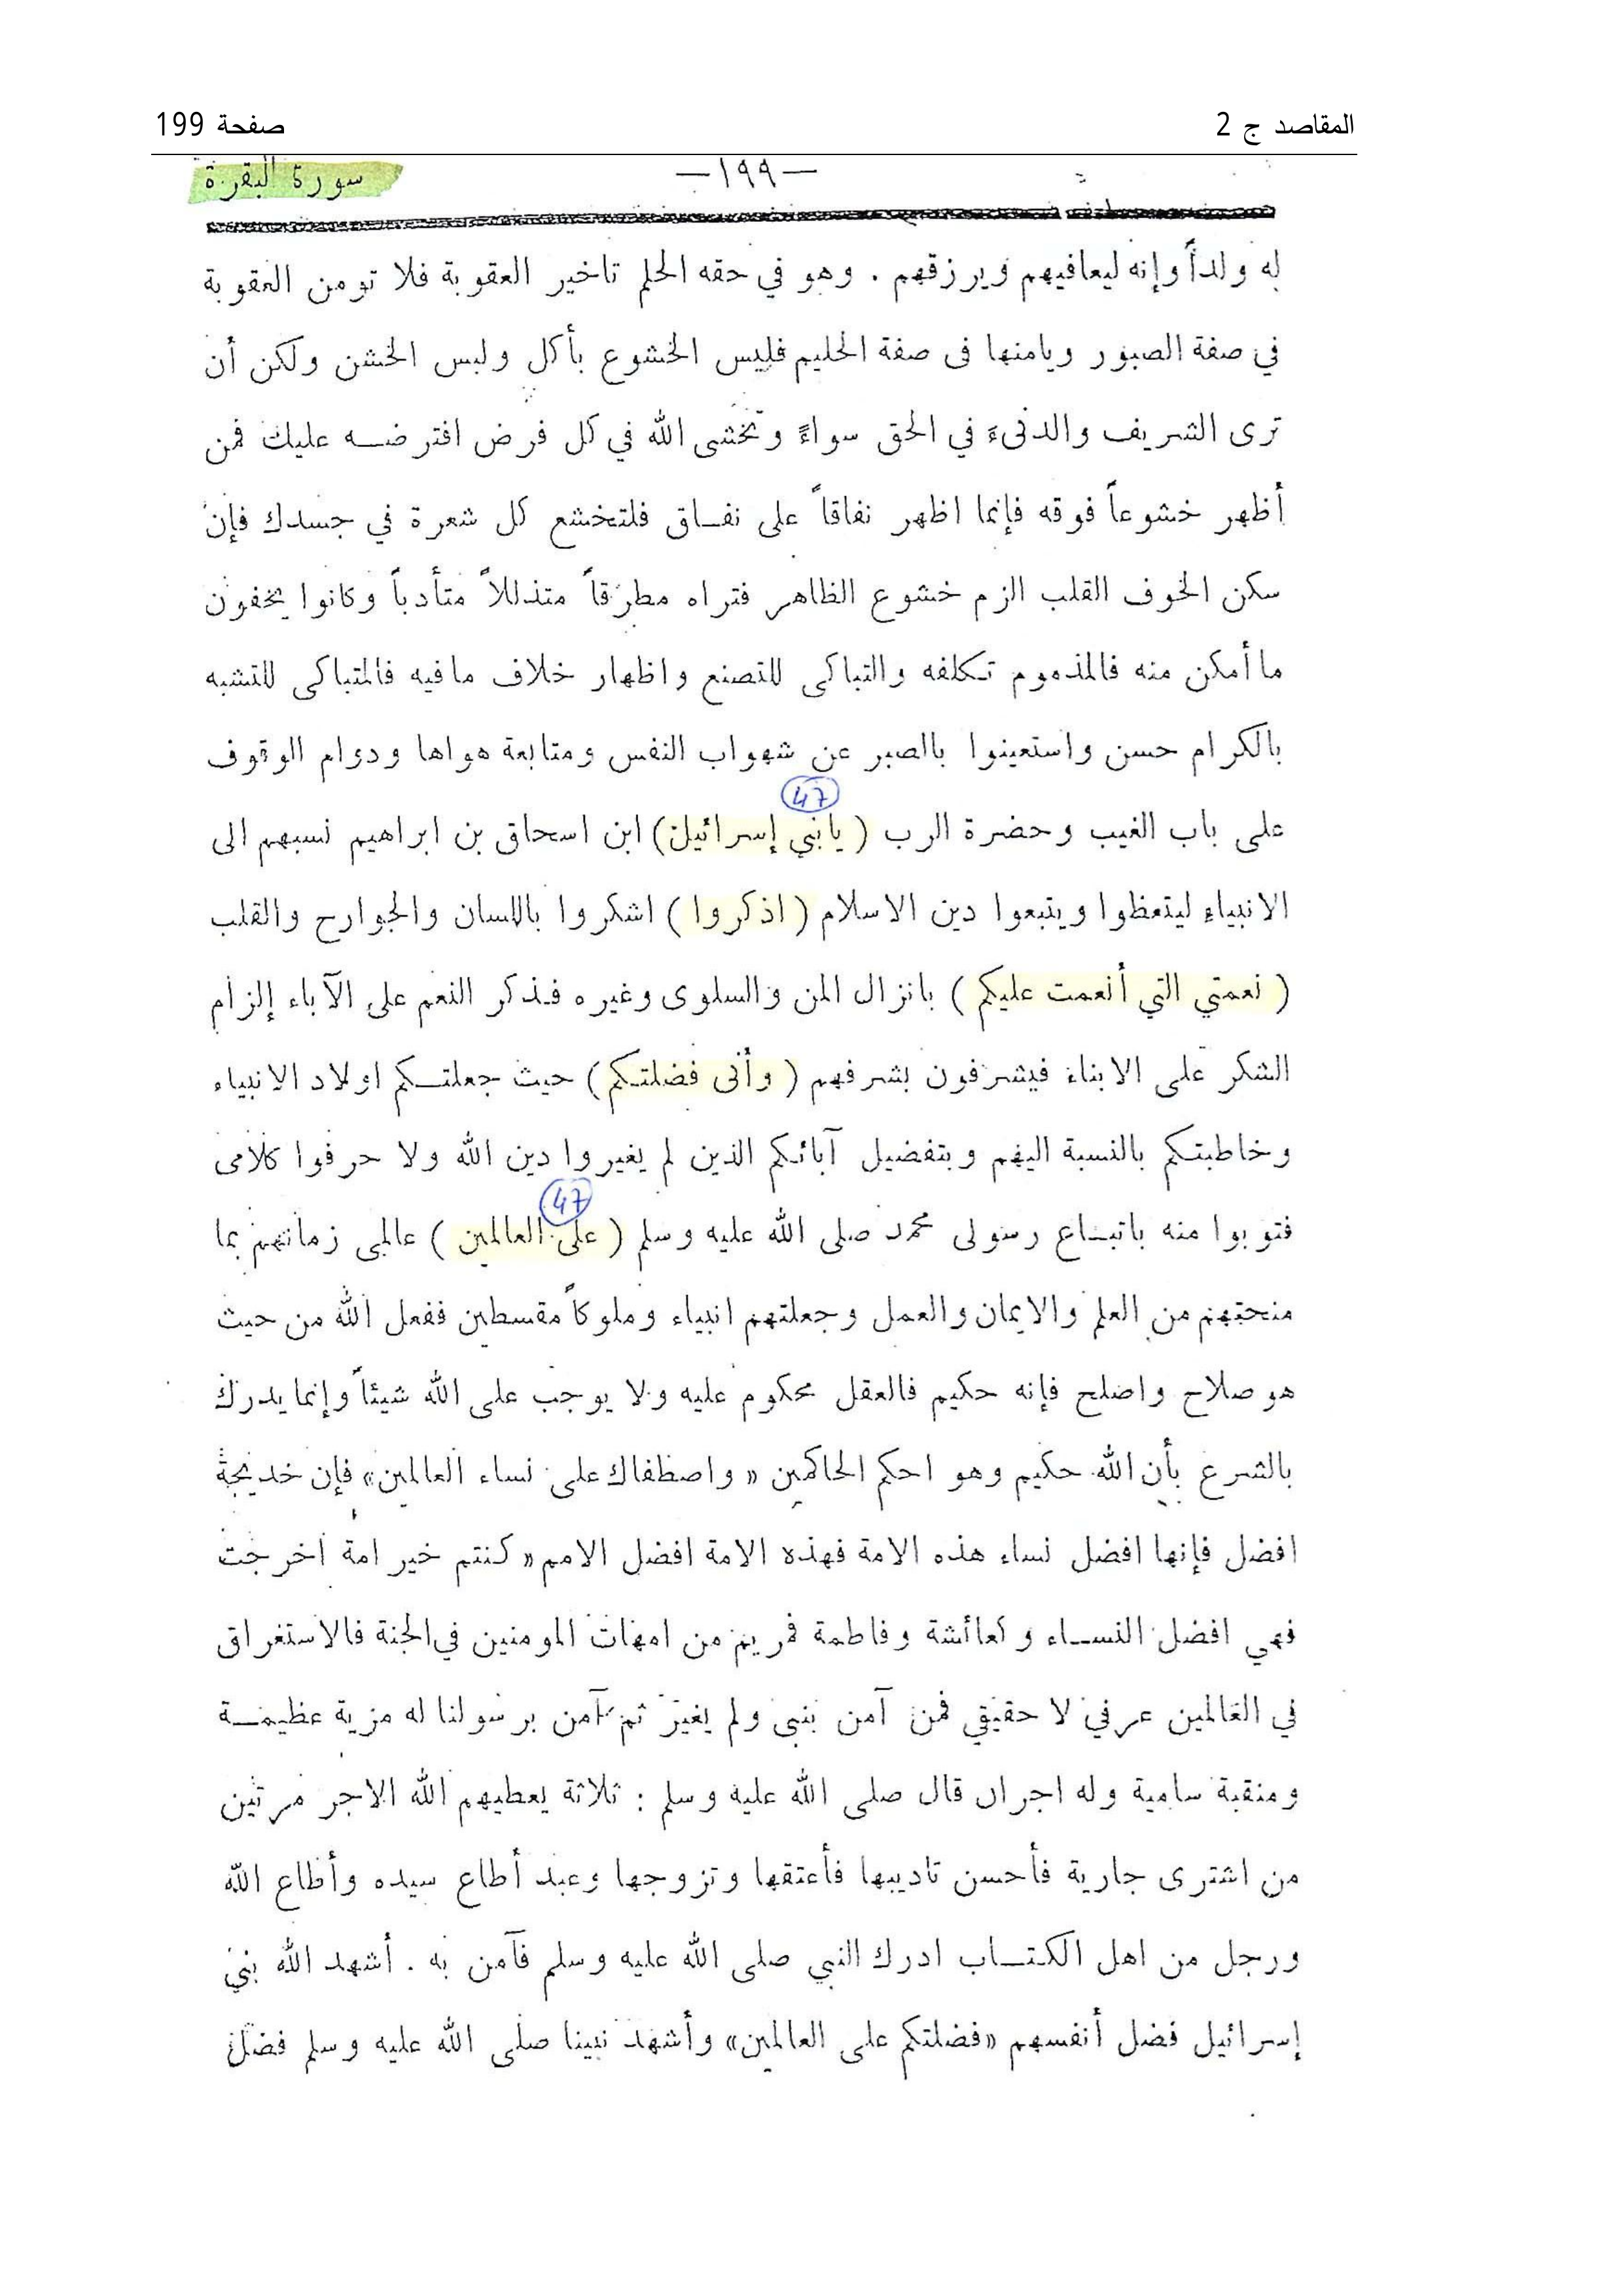 المقاصد ج 2
صفحة 199
سورة البقرة
—١٩٩—
له ولداً وإنه ليعافيهم ويرزقهم . وهو في حقه الحلم تاخير العقوبة فلا تومن العقوبة
في صفة الصبور ويامنها فى صفة الحليم فليس الخشوع بأكل ولبس الخشن ولكن أن
ترى الشريف والدنىء في الحق سواءً وتخشى الله في كل فرض افترضه عليك فمن
أظهر خشوعاً فوقه فإنما اظهر نفاقاً على نفاق فلتخشع كل شعرة في جسدك فإن
سكن الخوف القلب الزم خشوع الظاهر فتراه مطرقاً متذللاً متأدباً وكانوا يخفون
ما أمكن منه فالمذموم تكلفه والتباكى للتصنع واظهار خلاف ما فيه فالمتباكى للتشبه
بالكرام حسن واستعينوا بالصبر عن شهواب النفس ومتابعة هواها ودوام الوقوف
47
على باب الغيب وحضرة الرب ( يابني إسرائيل ) ابن اسحاق بن ابراهيم نسبهم الى
الانبياء ليتعظوا ويتبعوا دين الاسلام ( اذكروا ) اشكروا باللسان والجوارح والقلب
( نعمتي التي أنعمت عليكم ) بانزال المن والسلوى وغيره فذكر النعم على الآباء إلزام
الشكر على الابناء فيشرفون بشرفهم ( وأنى فضلتكم ) حيث جعلتكم اولاد الانبياء
وخاطبتكم بالنسبة اليهم وبتفضيل آبائكم الذين لم يغيروا دين الله ولا حرفوا كلامى
47
فتوبوا منه باتباع رسولى محمد صلى الله عليه وسلم ( على العالمين ) عالمى زمانهم بما
منحتهم من العلم والايمان والعمل وجعلتهم انبياء وملوكاً مقسطين ففعل الله من حيث
هو صلاح واصلح فإنه حكيم فالعقل محكوم عليه ولا يوجب على الله شيئاً وإنما يدرك
بالشرع بأن الله حكيم وهو احكم الحاكمين « واصطفاك على نساء العالمين» فإن خديجة
افضل فإنها افضل نساء هذه الامة فهذه الامة افضل الامم « كنتم خير امة اخرجت
فهي افضل النساء وكعائشة وفاطمة فمريم من امهات المومنين في الجنة فالاستغراق
في العالمين عرفي لا حقيقي فمن آمن بنبى ولم يغير ثم آمن برسولنا له مزية عظيمة
ومنقبة سامية وله اجران قال صلى الله عليه وسلم : ثلاثة يعطيهم الله الاجر مرتين
من اشترى جارية فأحسن تاديبها فأعتقها وتزوجها وعبد أطاع سيده وأطاع الله
ورجل من اهل الكتاب ادرك النبي صلى الله عليه وسلم فآمن به . أشهد الله بني
إسرائيل فضل أنفسهم «فضلتكم على العالمين» وأشهد نبينا صلى الله عليه وسلم فضل